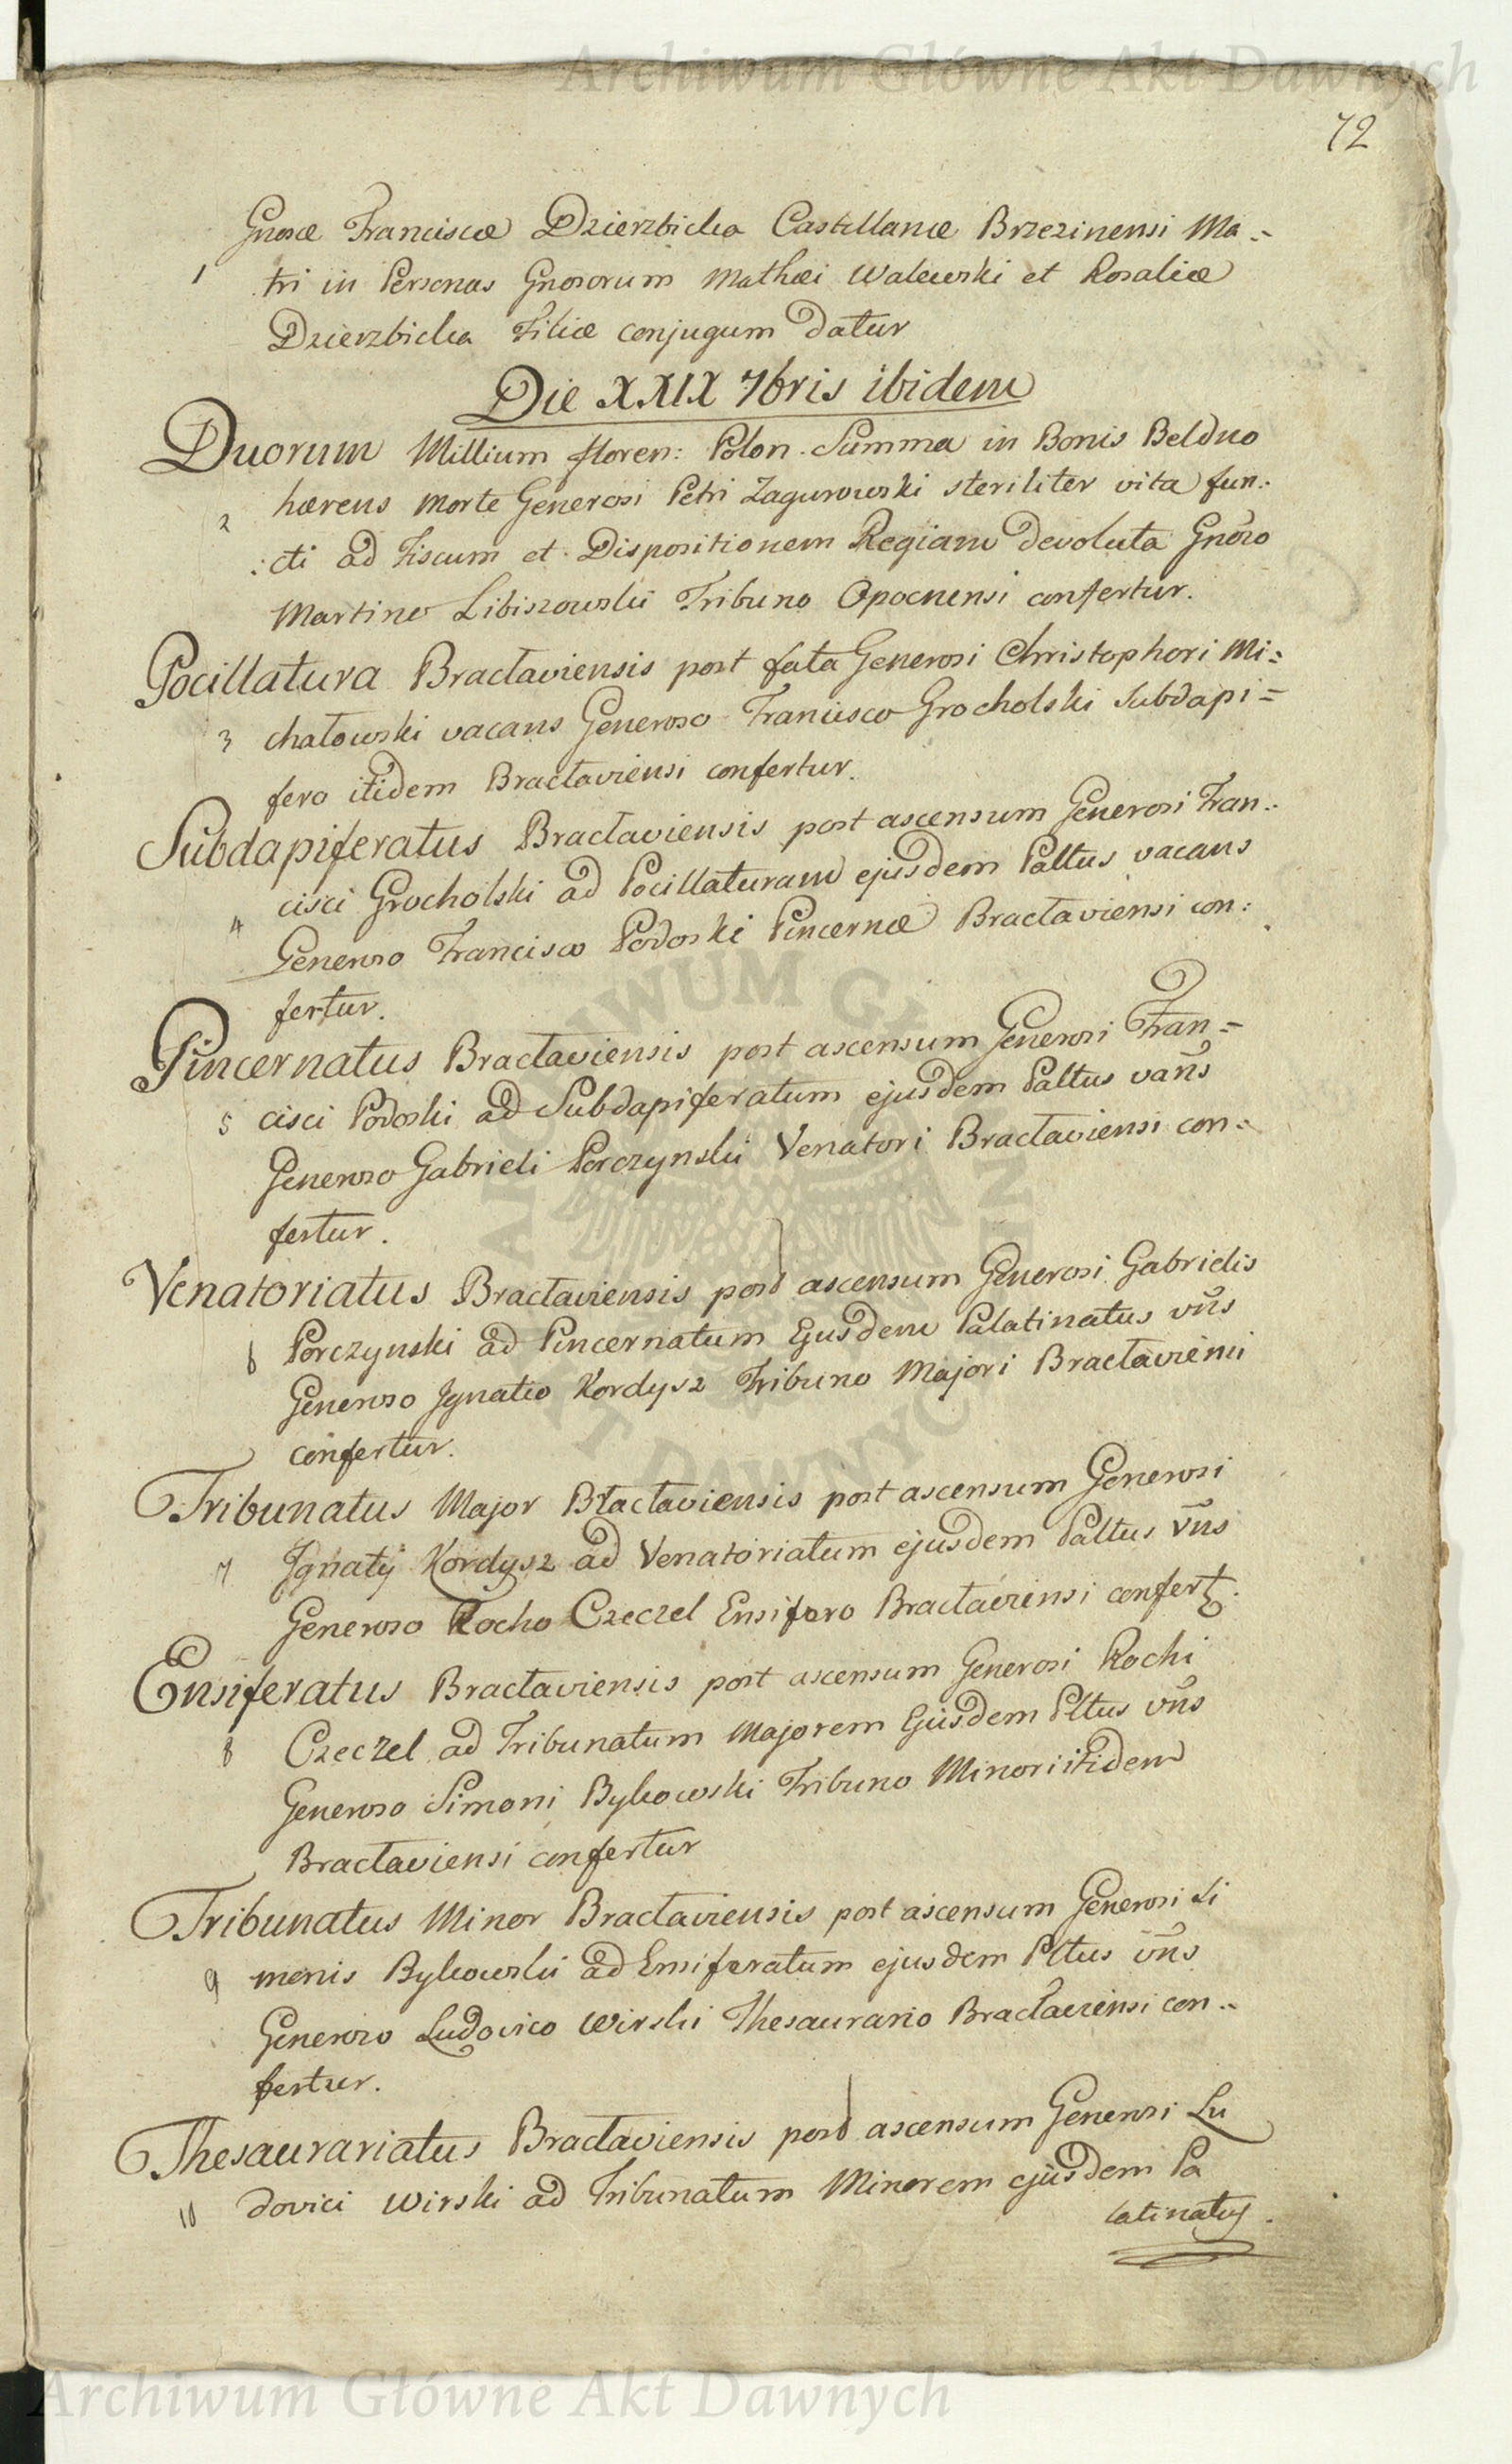 Archiwum Główne Akt Dawnych
72
Gnosæ Franciscæ Dzierzbicka Castellanæ Brzezinensi Ma-
1 tri in Personas Gnosorum Mathæi Walewski et Rosaliæ
Dzierzbicka Filiæ conjugum datur
Die XXIX 7bris ibidem
Duorum Millium floren: Polon. Summa in Bonis Belduo
2 hærens morte Generosi Petri Zagurowski steriliter vita fun:
:cti ad Fiscum et Dispositionem Regiam devoluta Gnoso
Martino Libiszowski Tribuno Opocnensi confertur.
Pocillatura Braclaviensis post fata Generosi Christophori Mi=
3 chałowski vacans Generoso Francisco Grocholski Subdapi=
fero itidem Braclaviensi confertur.
Subdapiferatus Braclaviensis post ascensum Generosi Fran-
4 cisci Grocholski ad Pocillaturam ejusdem Paltus vacans
Generoso Francisco Podoski Pincernæ Braclaviensi con:
fertur.
Pincernatus Braclaviensis post ascensum Generosi Fran=
5 cisci Podoski ad Subdapiferatum ejusdem Paltus vans
Generoso Gabrieli Porczynski Venatori Braclaviensi con-
fertur.
Venatoriatus Braclaviensis post ascensum Generosi Gabrielis
6 Porczynski ad Pincernatum Ejusdem Palatinatus vns
Generoso Ignatio Kordysz Tribuno Majori Braclaviensi
confertur.
Tribunatus Major Braclaviensis post ascensum Generosi
7 Ignatij Kordysz ad Venatoriatum ejusdem Paltus vns
Generoso Rocho Czeczel Ensifero Braclaviensi confert.
Ensiferatus Braclaviensis post ascensum Generosi Rochi
8 Czeczel ad Tribunatum Majorem Ejusdem Pltus vns
Generoso Simoni Bykowski Tribuno Minori itidem
Braclaviensi confertur
Tribunatus Minor Braclaviensis post ascensum Generosi Si
9 monis Bykowski ad Ensiferatum ejusdem Pltus vns
Generoso Ludovico Wirski Thesaurario Braclaviensi con-
fertur.
Thesaurariatus Braclaviensis post ascensum Generosi Lu
10 dovici Wirski ad Tribunatum Minorem ejusdem Pa
latinatus.
Archiwum Główne Akt Dawnych